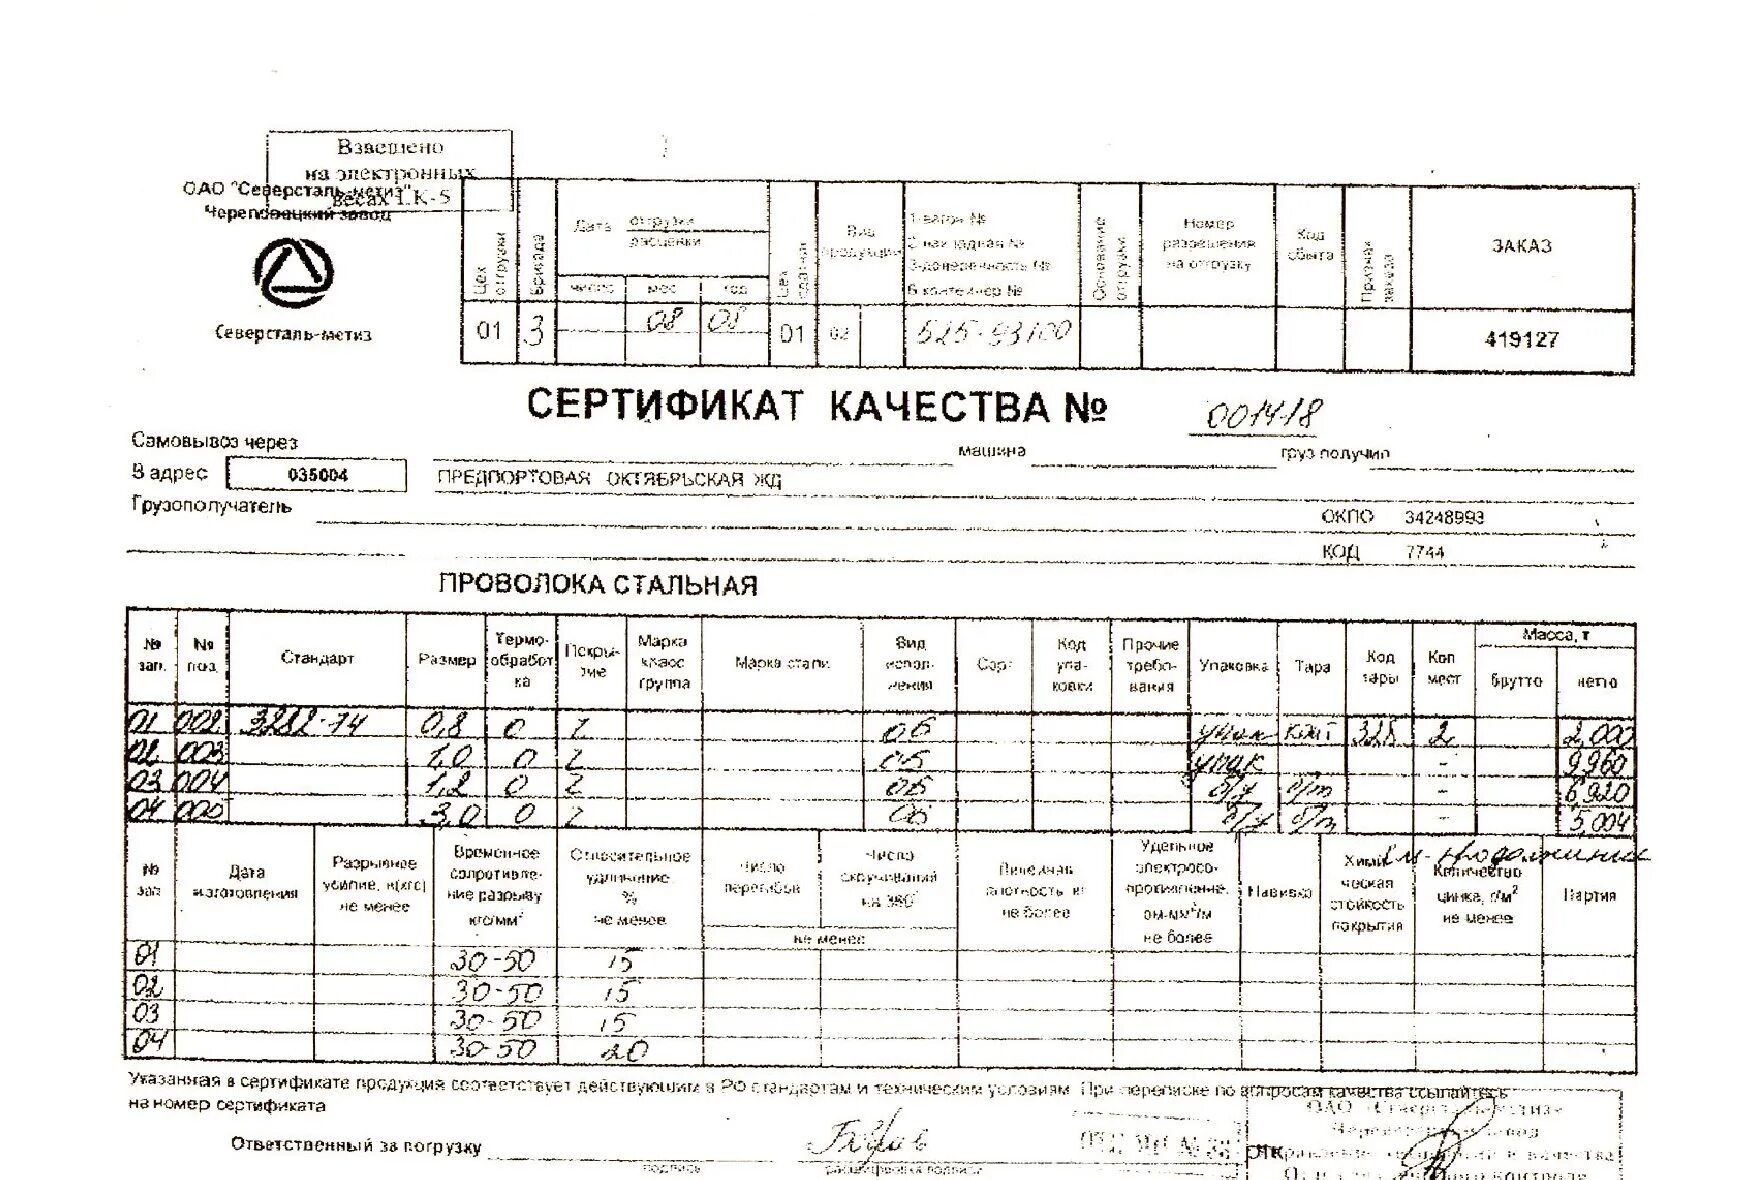 Взвешено
на электронных
весах
ОАО "Северсталь-метиз"
Череповецкий завод
Северсталь-метиз
Цех отгрузки
Бригада
Дата отгрузки
расценки
число мес год
Цех
Вид продукции
1-вагон №
2-накладная №
3-доверенность №
6 контейнер №
Основание отгрузки
Номер разрешения на отгрузку
Код сбыта
Признак заказа
ЗАКАЗ
01 3 08 08 01 02 525-93100 419127
СЕРТИФИКАТ КАЧЕСТВА № 001418
Самовывоз через машина груз получил
В адрес 035004 ПРЕДПОРТОВАЯ ОКТЯБРЬСКАЯ ЖД
Грузополучатель ОКПО 34248993
КОД 7744
ПРОВОЛОКА СТАЛЬНАЯ
№ зап. № поз. Стандарт Размер Термо-обработка Покры-тие Марка класс группа Марка стали Вид испол-нения Сорт Код упа-ковки Прочие требо-вания Упаковка Тара Код тары Кол мест Масса, т брутто нетто
01 002 3282-74 0,8 0 2 об упак 2 2,000
02 003 1,0 0 2 об упак - 9,960
03 004 1,2 0 2 об б/у б/т - 6,920
04 3,0 0 2 об б/у б/т - 5,004
см. продолжение
№ зап. Дата изготовления Разрывное усилие, н(кгс) не менее Временное сопротивле-ние разрыву кгс/мм² Относительное удлинение, % не менее Число перегибов Число скручиваний на 360° не менее Линейная плотность кг не более Удельное электросо-противление, ом-мм²/м не более Навивка Хими-ческая стойкость покрытия Количество цинка, г/м² не менее Партия
01 30-50 15
02 30-50 15
03 30-50 15
04 30-50 20
Указанная в сертификате продукция соответствует действующим в РФ стандартам и техническим условиям. При переписке по вопросам качества ссылайтесь
на номер сертификата
ОАО «Северсталь-метиз»
Череповецкий завод
Ответственный за погрузку
подпись расшифровка подписи
ОТК